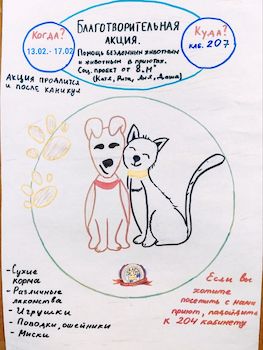 Когда?
13.02. - 17.02
Благотворительная
акция.
Помощь бездомным животным
и животным в приютах.
Соц. проект от 8 „М"
(Катя, Лиза, Аня, Даша)
Куда?
каб. 207
Акция продлится
и после каникул
- Сухие
корма
- Различные
лакомства
- Игрушки
- Поводки, ошейники
- Миски
Если вы
хотите
посетить с нами
приют, подойдите
к 204 кабинету